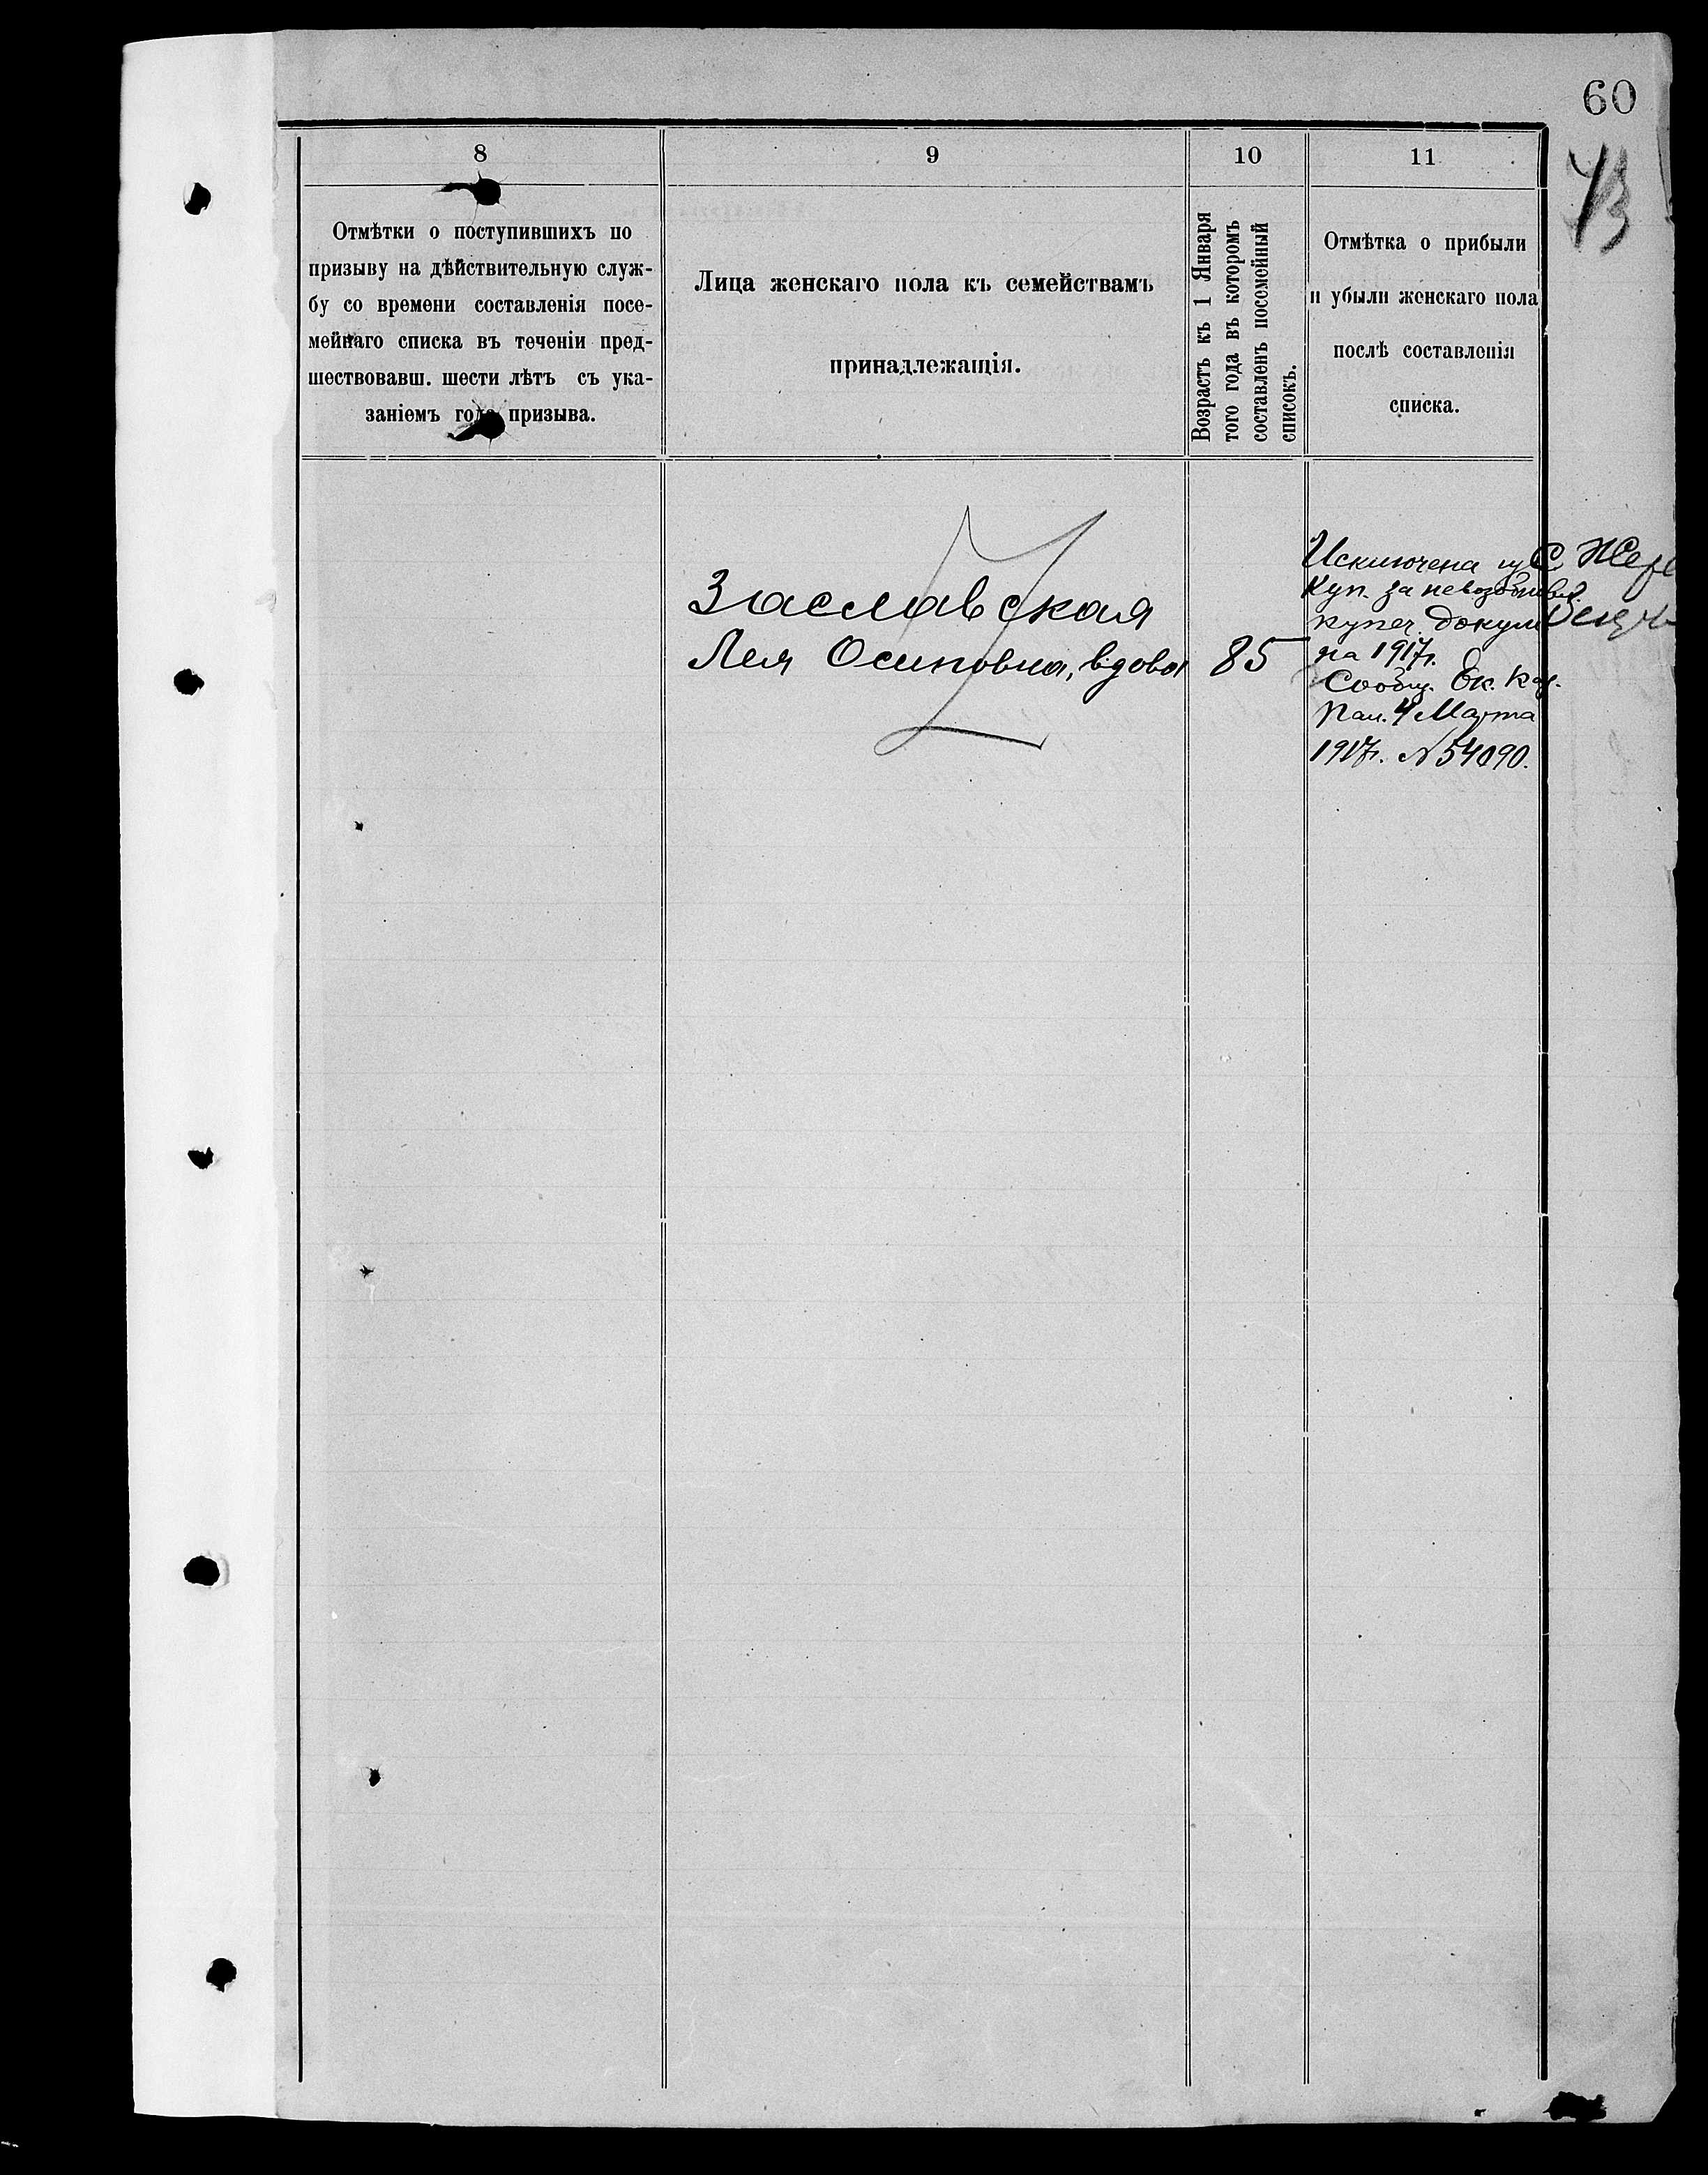 60
8
9
10
11
Отмѣтки о поступившихъ по
призыву на дѣйствительную служ-
бу со времени составленія посе-
мейнаго списка въ теченіи пред-
шествовавш. шести лѣтъ съ ука-
заніемъ года призыва.
Лица женскаго пола къ семействамъ
принадлежащія.
Возрастъ къ 1 Января
того года въ которомъ
составленъ посемейный
списокъ.
Отмѣтка о прибыли
и убыли женскаго пола
послѣ составленія
списка.
Заславская
Лея Осиповна, вдова
85
Исключена из
куп. за невозобновл.
купеч. докум
на 1917г.
Сообщ. Ек. Каз.
Пал. 4 Марта
1917г. N 54090.